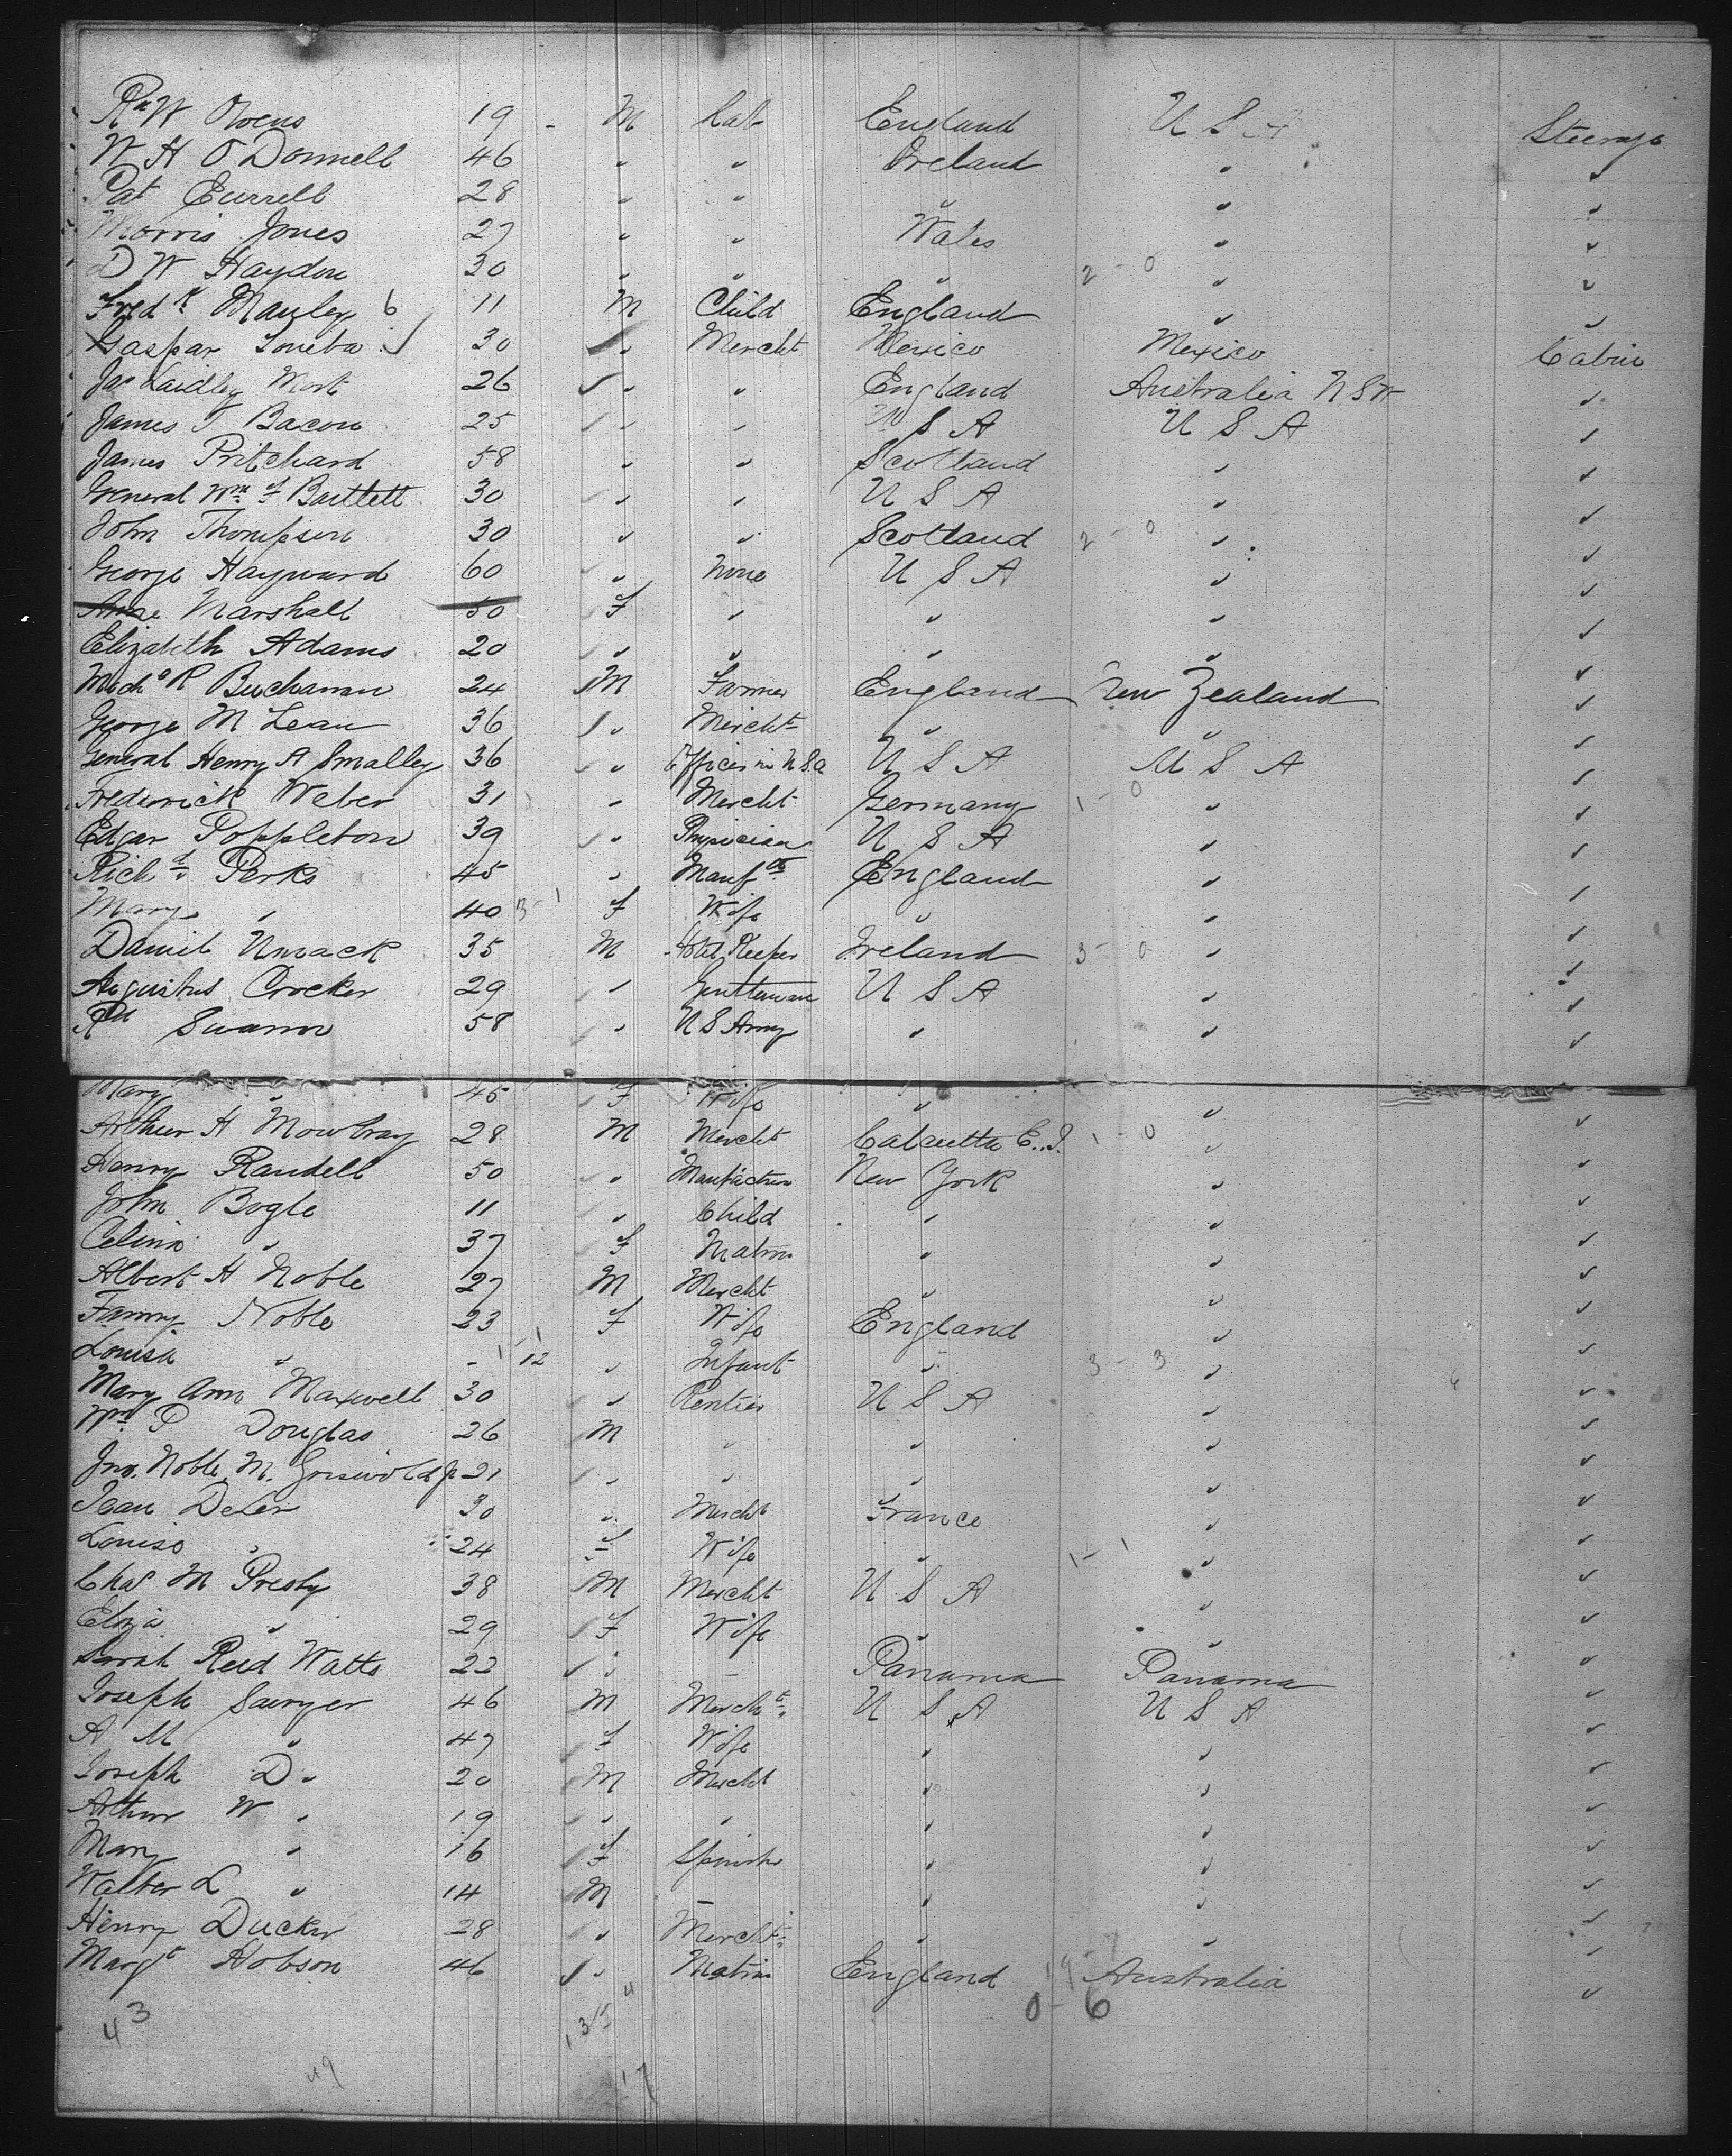 Rd W Owens 19 - M Lab England U S A Steerage
W H O Donnell 46 " " Ireland " "
Pat Currell 28 " " " " "
Morris Jones 27 " " Wales " "
D W Haydon 30 " " " 2 - 0 " "
Fredk Manley 6 11 M Child England " "
Gaspar 30 " Mercht Mexico Mexico Cabin
Jas Laidley Mort 26 " " England Australia N S W "
James T Bacon 25 " " U S A U S A "
James Pritchard 58 " " Scotland " "
General Wm F Bartlett 30 " " U S A " "
John Thompson 30 " " Scotland 2 - 0 " "
George Hayward 60 " None U S A " "
Anne Marshall 50 F " " " "
Elizabeth Adams 20 " " " " "
R Buchanan 24 M Farmer England New Zealand "
George M Lean 36 " Mercht " " "
General Henry A Smalley 36 " Officer in U S A U S A U S A "
Frederick Weber 31 " Mercht Germany 1 - 0 " "
Edgar Poppleton 39 " Physician U S A " "
Richd Perks 45 " Manufr England " "
Mary " 40 3 - 1 F Wife " " "
Daniel Umack 35 M Hotel Keeper Ireland 3 - 0 " "
Augustus Crocker 29 " Gentleman U S A " "
Swann 58 " U S Army " " "
Mary " 45 F Wife " " "
Arthur H Mowbray 28 M Mercht Calcutta E. I. 1 - 0 " "
Henry Randell 50 " Manufacturer New York " "
John Bogle 11 " Child " " "
Celina " 37 F Matron " " "
Albert H Noble 27 M Mercht " " "
Fanny Noble 23 F Wife England " "
Louisa " - 1/12 " Infant " 3 - 3 " "
Mary Ann Maxwell 30 " Rentier U S A " "
Wm P Douglas 26 M " " " "
Jno. Noble M. Griswold Jr 21 " " " " "
Jean DeLer 30 " Mercht France " "
Louise " 24 F Wife " 1 - 1 " "
Chas M Presby 38 M Mercht U S A " "
Eliza " 29 F Wife " " "
Sarah Reid Watts 22 " — Panama Panama "
Joseph Sawyer 46 M Mercht U S A U S A "
A M " 47 F Wife " " "
Joseph D " 20 M Mercht " " "
Arthur W " 19 " " " " "
Mary " 16 F Spinster " " "
Walter L " 14 M — " " "
Henry Ducker 28 " Mercht " " "
Margt Hobson 46 " Matron England Australia "
0 - 6
43
49
17